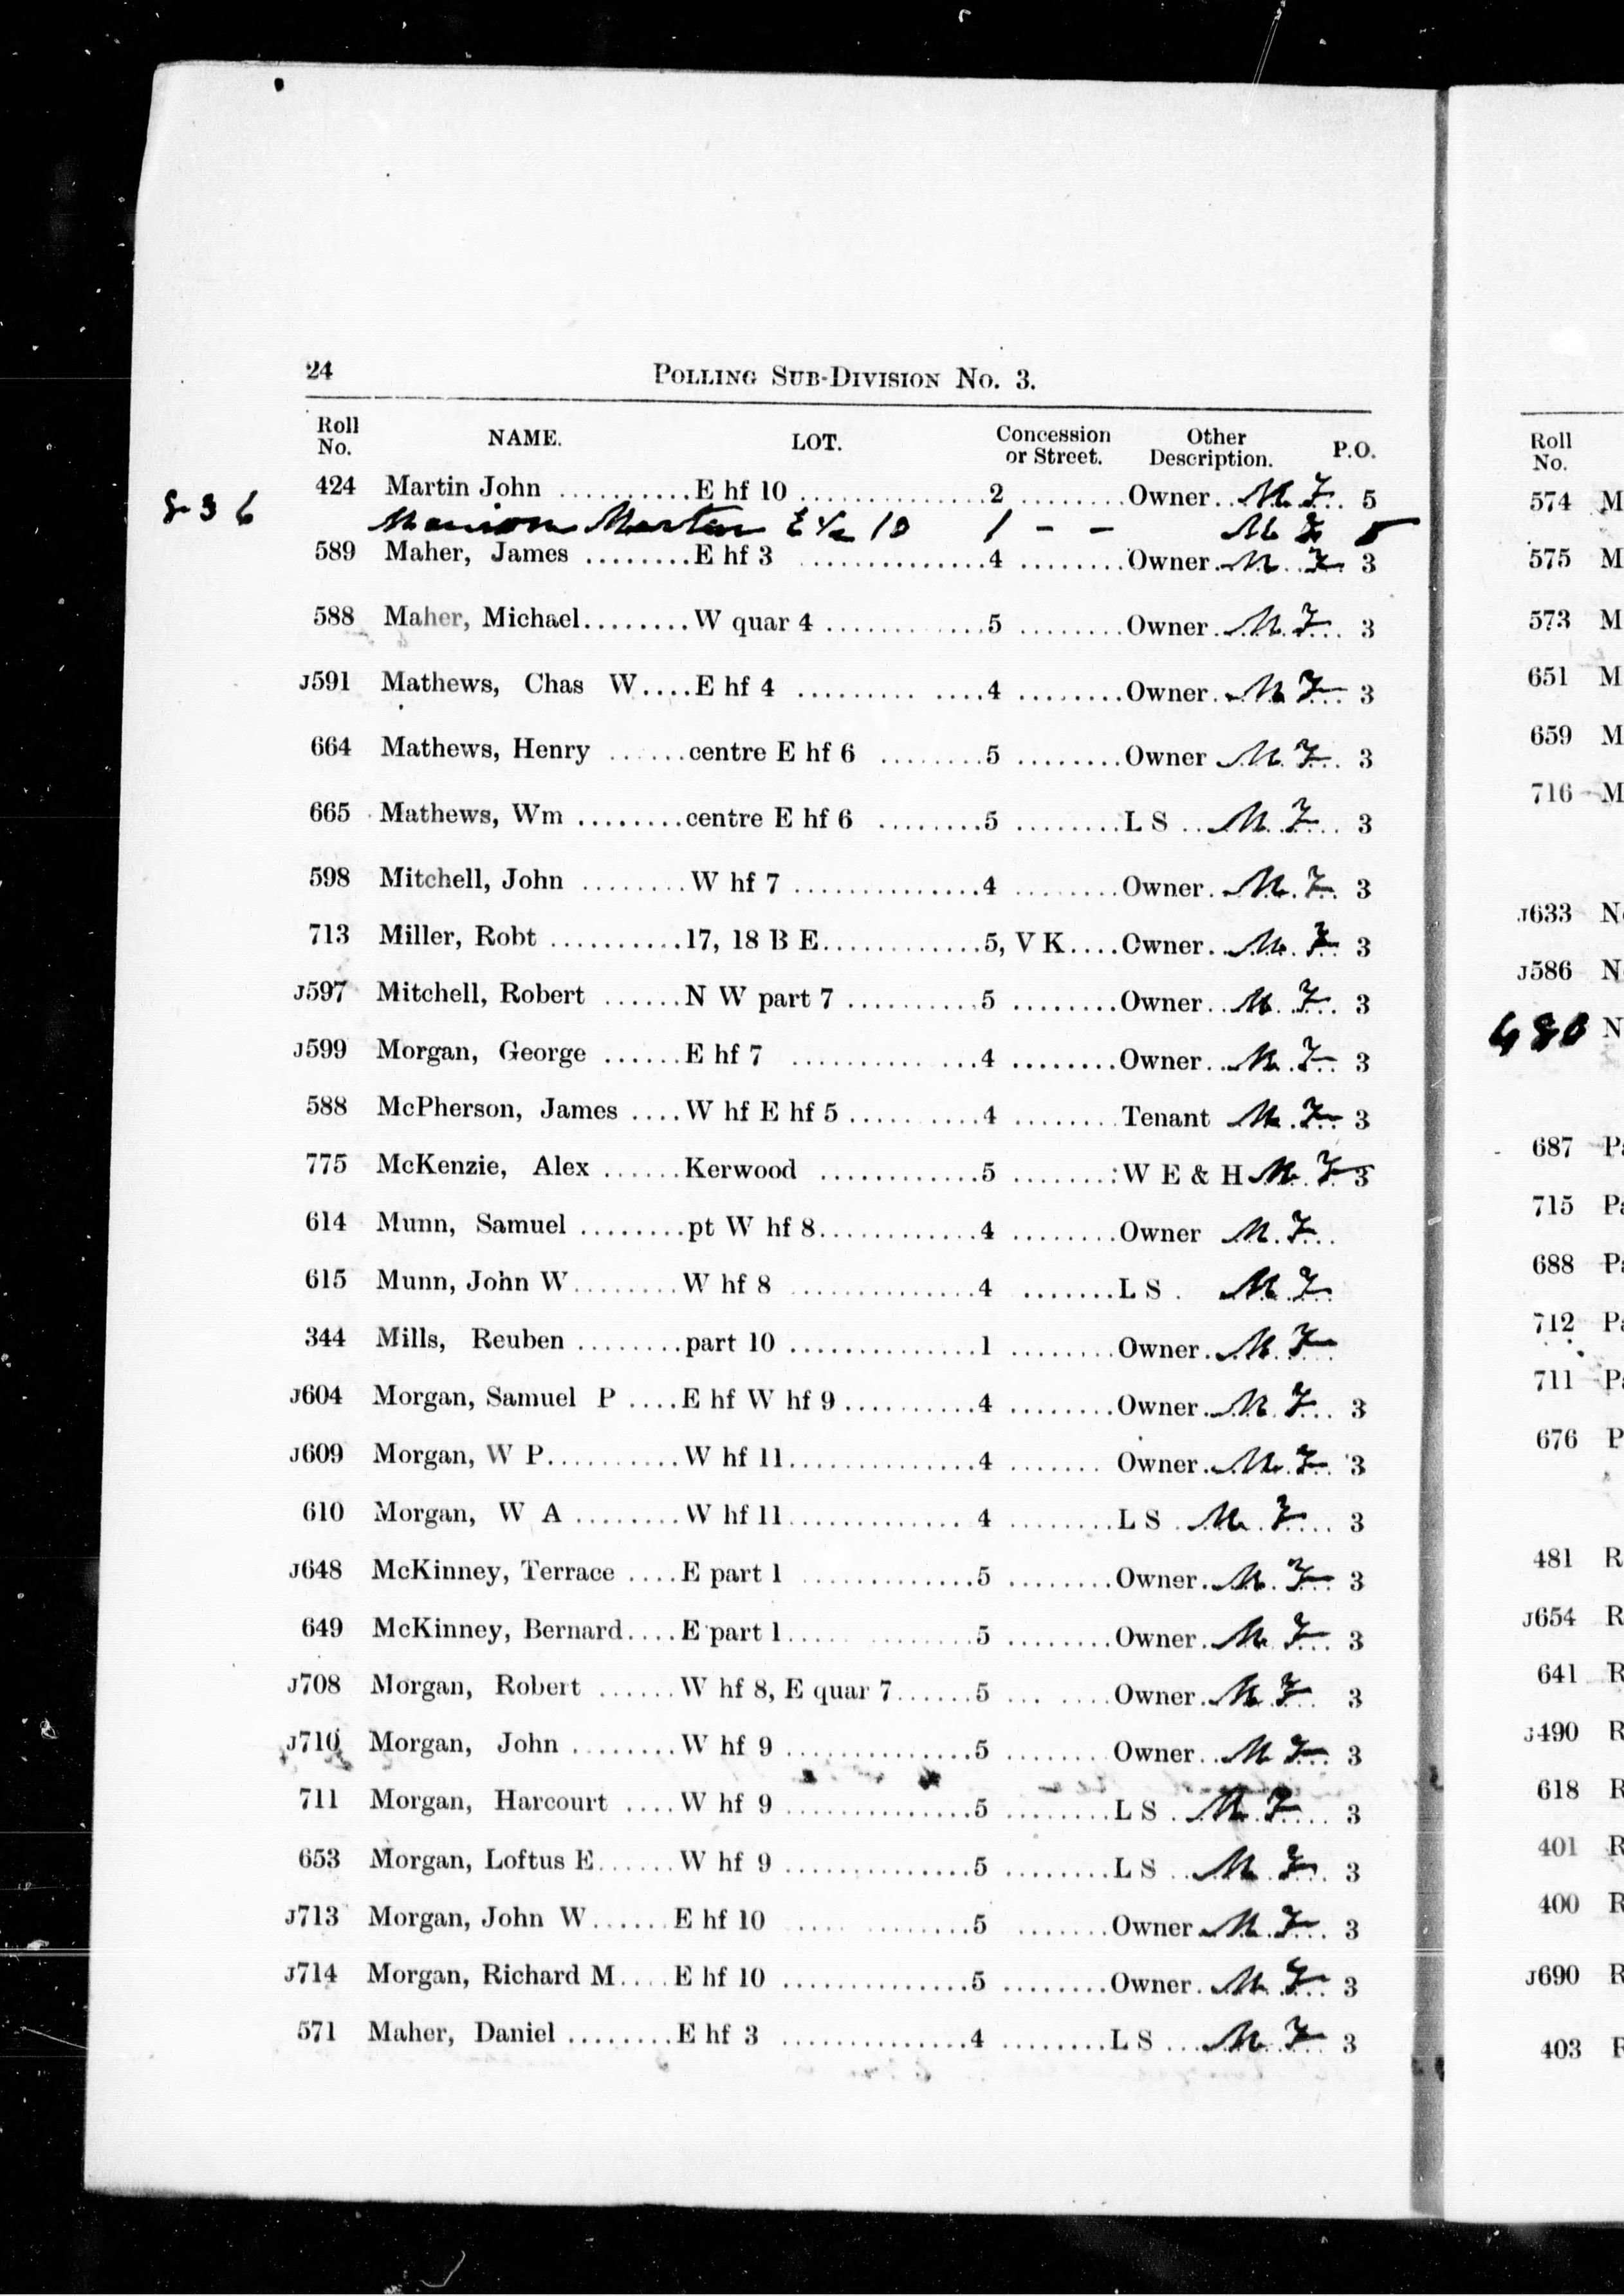 24 POLLING SUB-DIVISION No. 3.
Roll No. NAME. LOT. Concession or Street. Other Description. P.O.
424 Martin John ..........E hf 10 ...............2 ........Owner.. M.F. 5
Martin E ½ 10 1 - - M F 5
589 Maher, James ........E hf 3 ..............4 ........Owner. M. F. 3
588 Maher, Michael........W quar 4 ............5 ........Owner. M.F.. 3
J591 Mathews, Chas W....E hf 4 ......... ....4 ........Owner. M F... 3
664 Mathews, Henry ......centre E hf 6 ........5 ........Owner M.F.. 3
665 Mathews, Wm ........centre E hf 6 ........5 ........L S .. M.F... 3
598 Mitchell, John ........W hf 7 ..............4 ........Owner. M.F. 3
713 Miller, Robt ..........17, 18 B E............5, V K....Owner.. M.F. 3
J597 Mitchell, Robert ......N W part 7 ..........5 ........Owner.. M.F.. 3
J599 Morgan, George ......E hf 7 .......... ...4 ........Owner.. M.F.. 3
588 McPherson, James ....W hf E hf 5..........4 ........Tenant M.F. 3
775 McKenzie, Alex ......Kerwood ............5 ........:W E & H M.F 3
614 Munn, Samuel ........pt W hf 8............4 ........Owner M.F..
615 Munn, John W........W hf 8 ..............4 .......L S . M.F.
344 Mills, Reuben ........part 10 ..............1 ........Owner. M.F
J604 Morgan, Samuel P ....E hf W hf 9..........4 ........Owner. M.F.. 3
J609 Morgan, W P..........W hf 11..............4 ....... Owner. M.F. 3
610 Morgan, W A ........W hf 11.............. 4 ........L S . M.F.... 3
J648 McKinney, Terrace ....E part 1 .............5 ........Owner. M.F... 3
649 McKinney, Bernard....E part 1.... ........5 ........Owner. M F... 3
J708 Morgan, Robert ......W hf 8, E quar 7......5 ... ....Owner. M.F 3
J710 Morgan, John ........W hf 9 ..............5 ....... Owner.. M F.. 3
711 Morgan, Harcourt ....W hf 9 ..............5 ........L S . M.F.... 3
653 Morgan, Loftus E......W hf 9 ..............5 ........L S .. M F. 3
J713 Morgan, John W......E hf 10 .... ........5 .......Owner M.F.. 3
J714 Morgan, Richard M....E hf 10 ..............5 ........Owner. M F.. 3
571 Maher, Daniel ........E hf 3 ..............4 ........L S ... M.F 3
Roll No.
574 M
575 M
573 M
651 M
659 M
716 M
J633 N
J586 N
480 N
687 P
715 P
688 P
712 P
711 P
676 P
481 R
J654 R
641 R
J490 R
618 R
401 R
400 R
J690 R
403